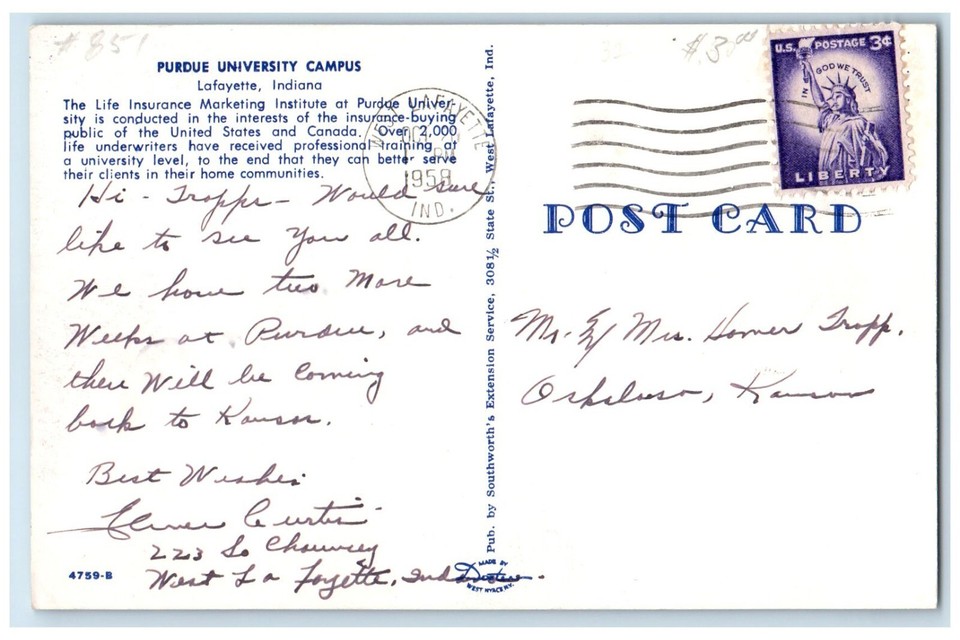 #851
PURDUE UNIVERSITY CAMPUS
Lafayette, Indiana
The Life Insurance Marketing Institute at Purdue Univer-
sity is conducted in the interests of the insurance-buying
public of the United States and Canada. Over 2,000
life underwriters have received professional training at
a university level, to the end that they can better serve
their clients in their home communities.
Hi - Trapps - Would sure
like to see You all.
We have two More
Weeks at Purdue, and
then Will be Coming
back to Kansas.
Best Wishes
Curtis
223 So Chauncey
West La Fayette, Ind.
4759-B
Pub. by Southworth's Extension Service, 308½ State St., West Lafayette, Ind.
MADE BY
Dexter
WEST NYACK N.Y.
WEST LAFAYETTE
OCT
PM
1958
IND.
$3.00
U.S. POSTAGE 3¢
IN GOD WE TRUST
LIBERTY
POST CARD
Mr. & Mrs. Homer Trapp.
Oskaloosa, Kansas